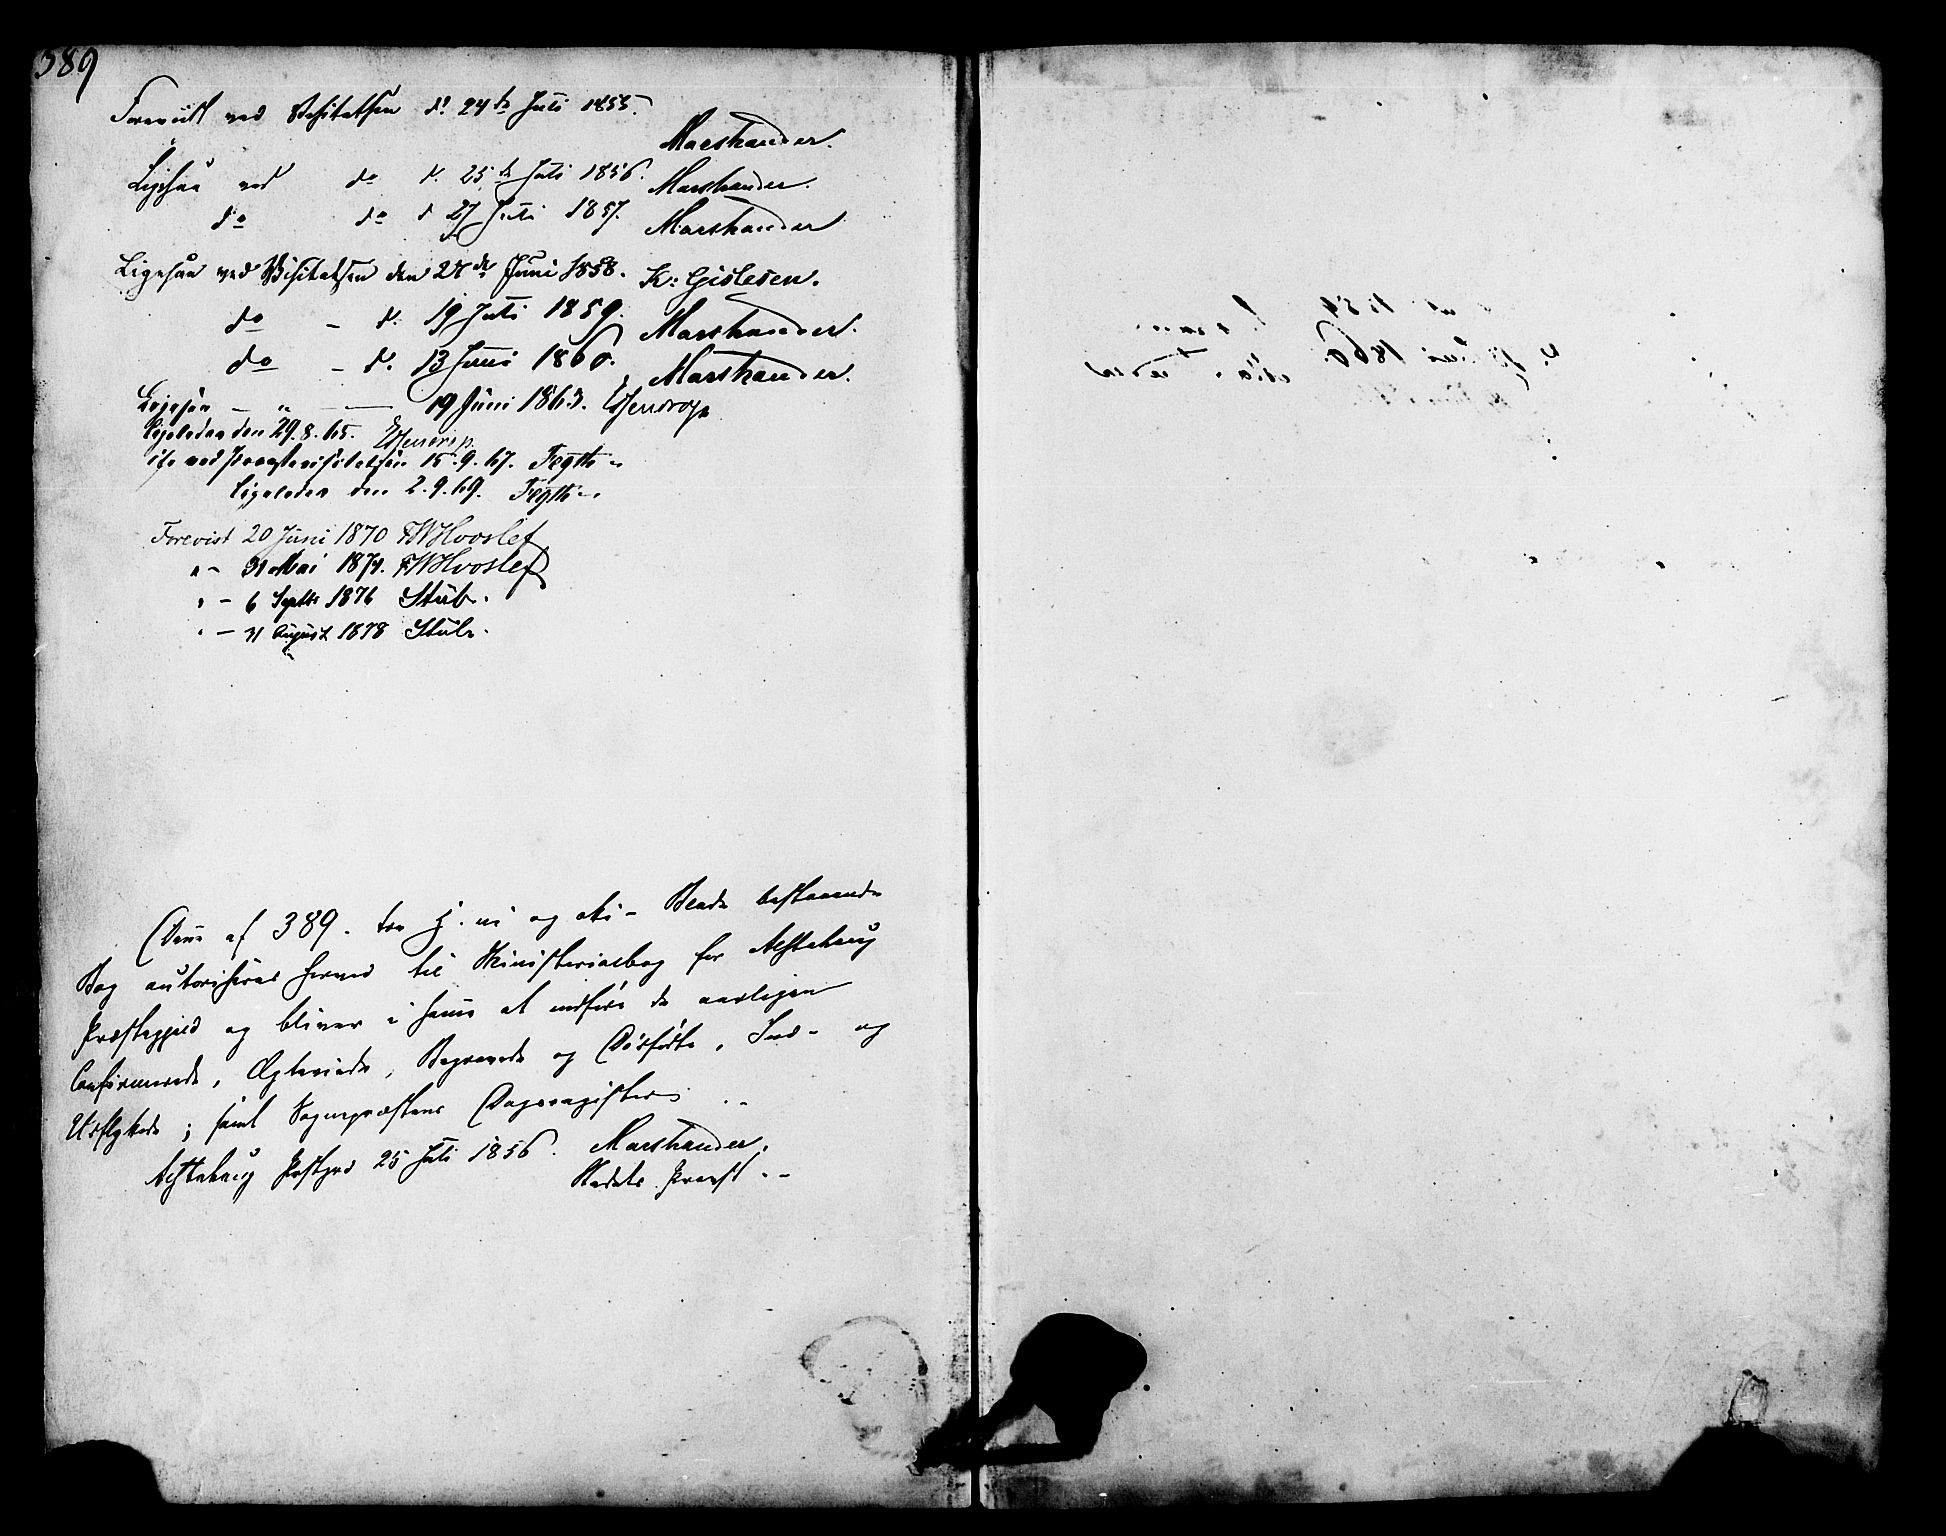 389
Forevist ved Visitatsen d. 24de Juli 1855.
Marshander.
Ligesaa ved do d. 25de Juli 1856. Marshander.
do do d 27 Juli 1857. Marshander
Ligesaa ved Visitatsen den 24de Juni 1858. K: Gislesen.
do - d. 19 Juli 1859. Marshander.
do - d. 13 Juni 1860. Marshander.
Ligesaa — " — 19 Juni 1863. Essendrop
Ligeledes den 29.8.65. Essendrop.
ved Provstevisitatsen 15.9.67. Fegth
Ligeledes den 2.9.69. Fegth
Forevist 20 Juni 1870 FWHvoslef
" - 31 Mai 1874. FWHvoslef
" - 6 Septbr 1876 Stub.
" - 31 August 1878 Stub.
Denne af 389. tre H. ni og oti - Blade bestaaende
Bog autoriseres herved til Ministerialbog for Alstahaug
Præstegjeld og bliver i samme at indføre de aarligen
Confirmerede, Ægteviede, Begravede og Dødfødte, Ind- og
Udflyttede; samt Sognepræstens Dagsregister
Alstahaug Præstgrd 25 Juli 1856. Marshander.
Provst.
1860.